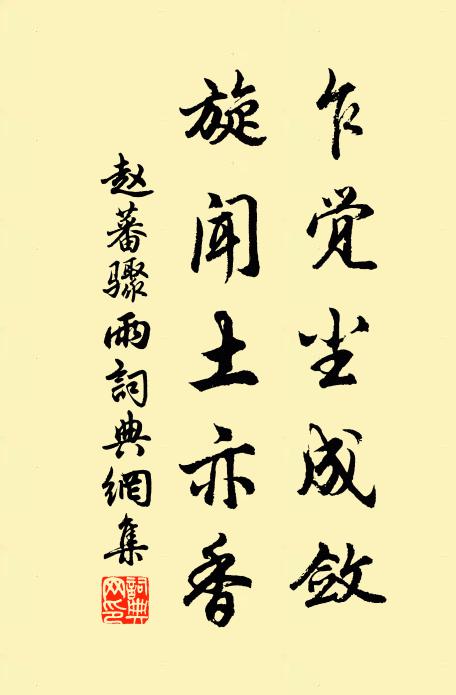 乍觉尘成敛
旋闻土亦香
赵蕃骤雨詞典網集
詞典网印